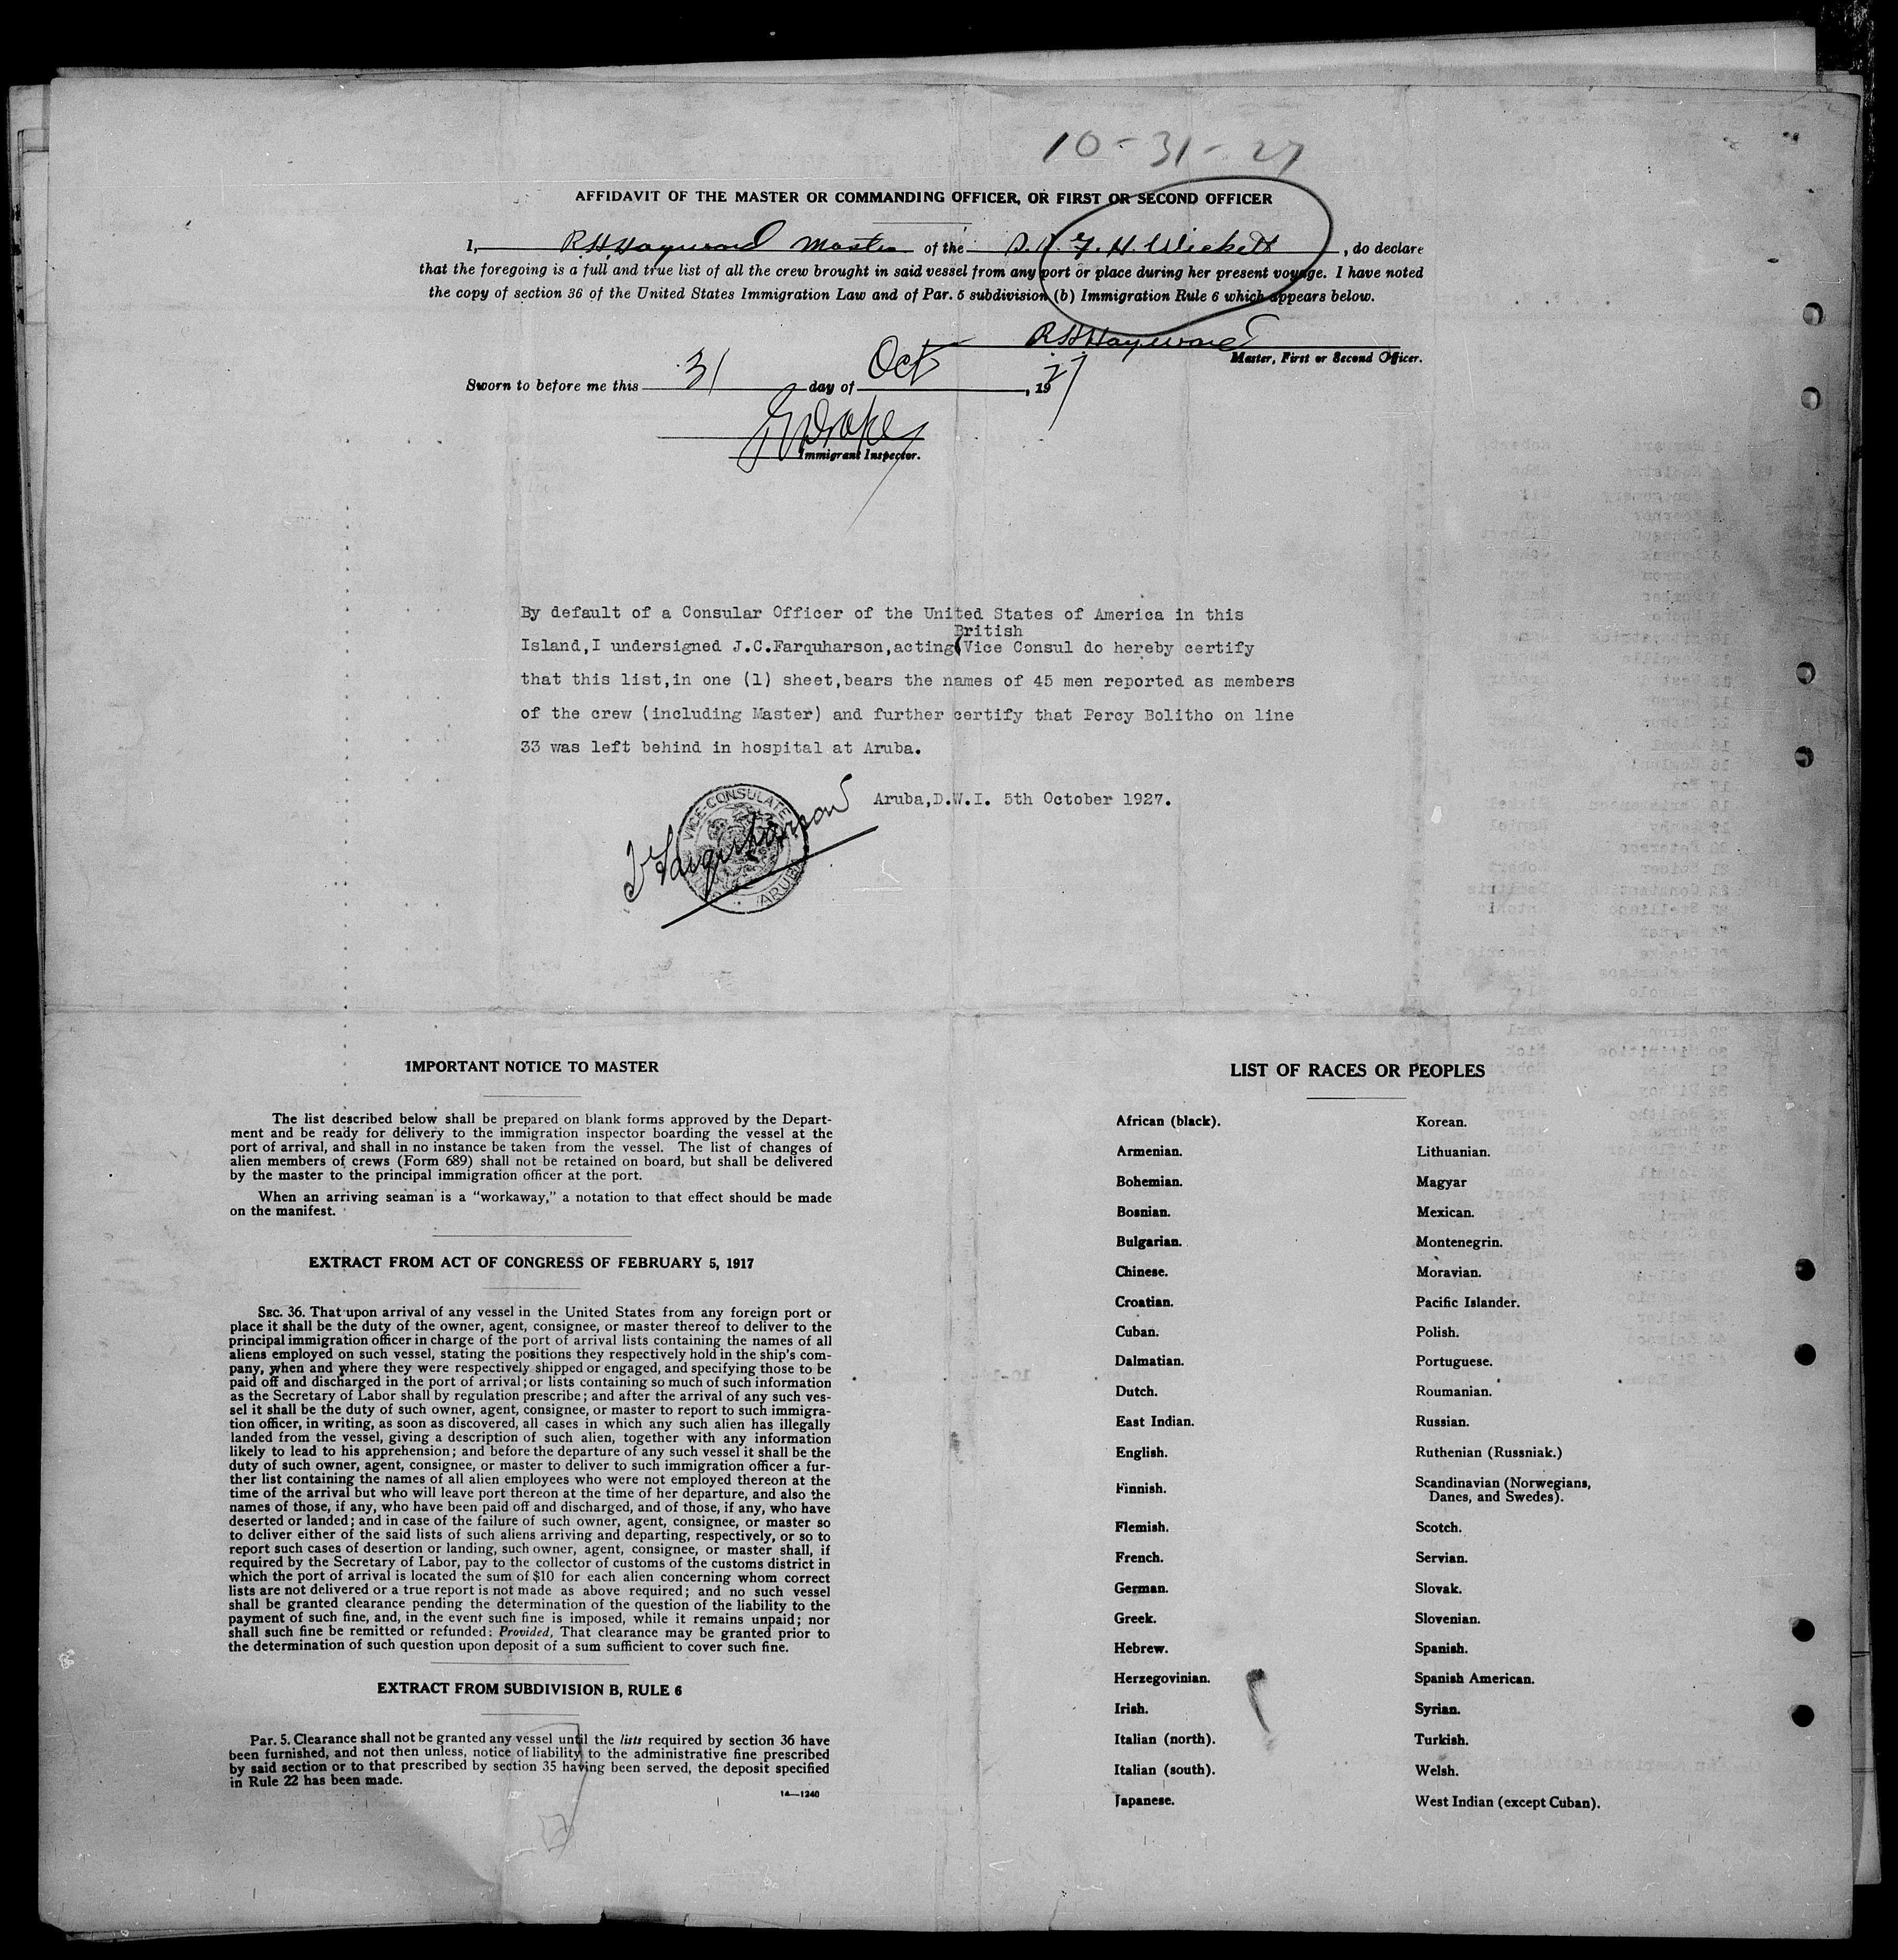 10-31-27
AFFIDAVIT OF THE MASTER OR COMMANDING OFFICER, OR FIRST OR SECOND OFFICER
I, R.H. Hayward Master of the S.S. F. H. Wickett, do declare
that the foregoing is a full and true list of all the crew brought in said vessel from any port or place during her present voyage. I have noted
the copy of section 36 of the United States Immigration Law and of Par. 5 subdivision (b) Immigration Rule 6 which appears below.
RH Hayward
Master, First or Second Officer.
Sworn to before me this 31 day of Oct, 1927
Immigrant Inspector.
By default of a Consular Officer of the United States of America in this
British
Island,I undersigned J.C.Farquharson,acting(Vice Consul do hereby certify
that this list,in one (1) sheet,bears the names of 45 men reported as members
of the crew (including Master) and further certify that Percy Bolitho on line
33 was left behind in hospital at Aruba.
Aruba,D.W.I. 5th October 1927.
VICE-CONSULATE
ARUBA
Farquharson
IMPORTANT NOTICE TO MASTER
The list described below shall be prepared on blank forms approved by the Depart-
ment and be ready for delivery to the immigration inspector boarding the vessel at the
port of arrival, and shall in no instance be taken from the vessel. The list of changes of
alien members of crews (Form 689) shall not be retained on board, but shall be delivered
by the master to the principal immigration officer at the port.
When an arriving seaman is a "workaway," a notation to that effect should be made
on the manifest.
EXTRACT FROM ACT OF CONGRESS OF FEBRUARY 5, 1917
SEC. 36. That upon arrival of any vessel in the United States from any foreign port or
place it shall be the duty of the owner, agent, consignee, or master thereof to deliver to the
principal immigration officer in charge of the port of arrival lists containing the names of all
aliens employed on such vessel, stating the positions they respectively hold in the ship's com-
pany, when and where they were respectively shipped or engaged, and specifying those to be
paid off and discharged in the port of arrival; or lists containing so much of such information
as the Secretary of Labor shall by regulation prescribe; and after the arrival of any such ves-
sel it shall be the duty of such owner, agent, consignee, or master to report to such immigra-
tion officer, in writing, as soon as discovered, all cases in which any such alien has illegally
landed from the vessel, giving a description of such alien, together with any information
likely to lead to his apprehension; and before the departure of any such vessel it shall be the
duty of such owner, agent, consignee, or master to deliver to such immigration officer a fur-
ther list containing the names of all alien employees who were not employed thereon at the
time of the arrival but who will leave port thereon at the time of her departure, and also the
names of those, if any, who have been paid off and discharged, and of those, if any, who have
deserted or landed; and in case of the failure of such owner, agent, consignee, or master so
to deliver either of the said lists of such aliens arriving and departing, respectively, or so to
report such cases of desertion or landing, such owner, agent, consignee, or master shall, if
required by the Secretary of Labor, pay to the collector of customs of the customs district in
which the port of arrival is located the sum of $10 for each alien concerning whom correct
lists are not delivered or a true report is not made as above required; and no such vessel
shall be granted clearance pending the determination of the question of the liability to the
payment of such fine, and, in the event such fine is imposed, while it remains unpaid; nor
shall such fine be remitted or refunded: Provided, That clearance may be granted prior to
the determination of such question upon deposit of a sum sufficient to cover such fine.
EXTRACT FROM SUBDIVISION B, RULE 6
Par. 5. Clearance shall not be granted any vessel until the lists required by section 36 have
been furnished, and not then unless, notice of liability to the administrative fine prescribed
by said section or to that prescribed by section 35 having been served, the deposit specified
in Rule 22 has been made.
14—1240
LIST OF RACES OR PEOPLES
African (black).
Armenian.
Bohemian.
Bosnian.
Bulgarian.
Chinese.
Croatian.
Cuban.
Dalmatian.
Dutch.
East Indian.
English.
Finnish.
Flemish.
French.
German.
Greek.
Hebrew.
Herzegovinian.
Irish.
Italian (north).
Italian (south).
Japanese.
Korean.
Lithuanian.
Magyar
Mexican.
Montenegrin.
Moravian.
Pacific Islander.
Polish.
Portuguese.
Roumanian.
Russian.
Ruthenian (Russniak.)
Scandinavian (Norwegians,
Danes, and Swedes).
Scotch.
Servian.
Slovak.
Slovenian.
Spanish.
Spanish American.
Syrian.
Turkish.
Welsh.
West Indian (except Cuban).